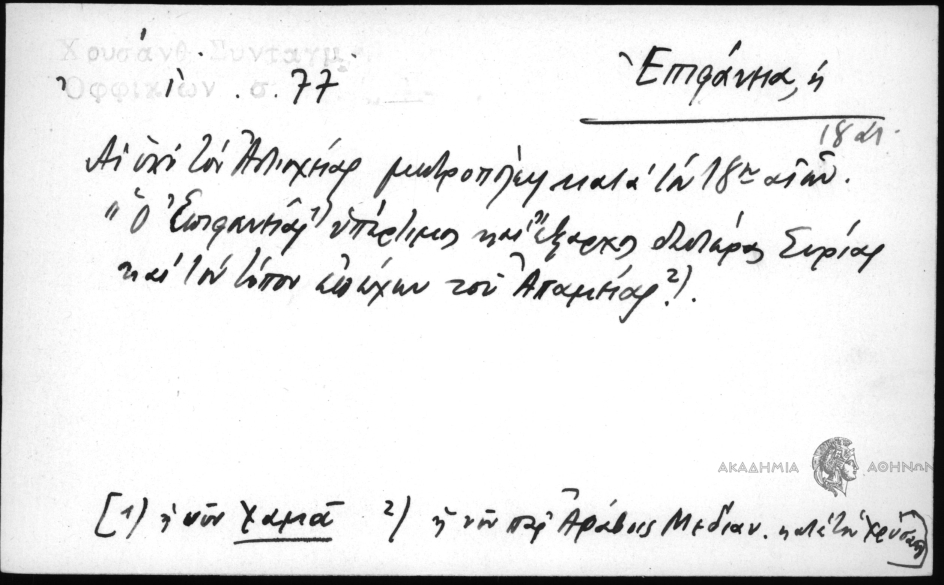 Χρυσάνθ. Συνταγμ.
Ὀφφικίων σ. 77
Ἐπιφάνεια, ἡ
18 αἰ.
Αἱ ὑπὸ τὸν Ἀντιοχείας μητροπόλεις κατὰ τὸν 18ον αἰῶνα.
"ὁ Ἐπιφανείας 1) ὑπέρτιμος καὶ ἔξαρχος δευτέρας Συρίας
καὶ τὸν τόπον ἐπέχων τοῦ Ἀπαμείας 2).
ΑΚΑΔΗΜΙΑ ΑΘΗΝΩΝ
[1) ἡ νῦν Χαμᾶ 2) ἡ νῦν παρ' Ἄραβσι Μεδίαν. κατὰ τὸν Χρύσανθ]